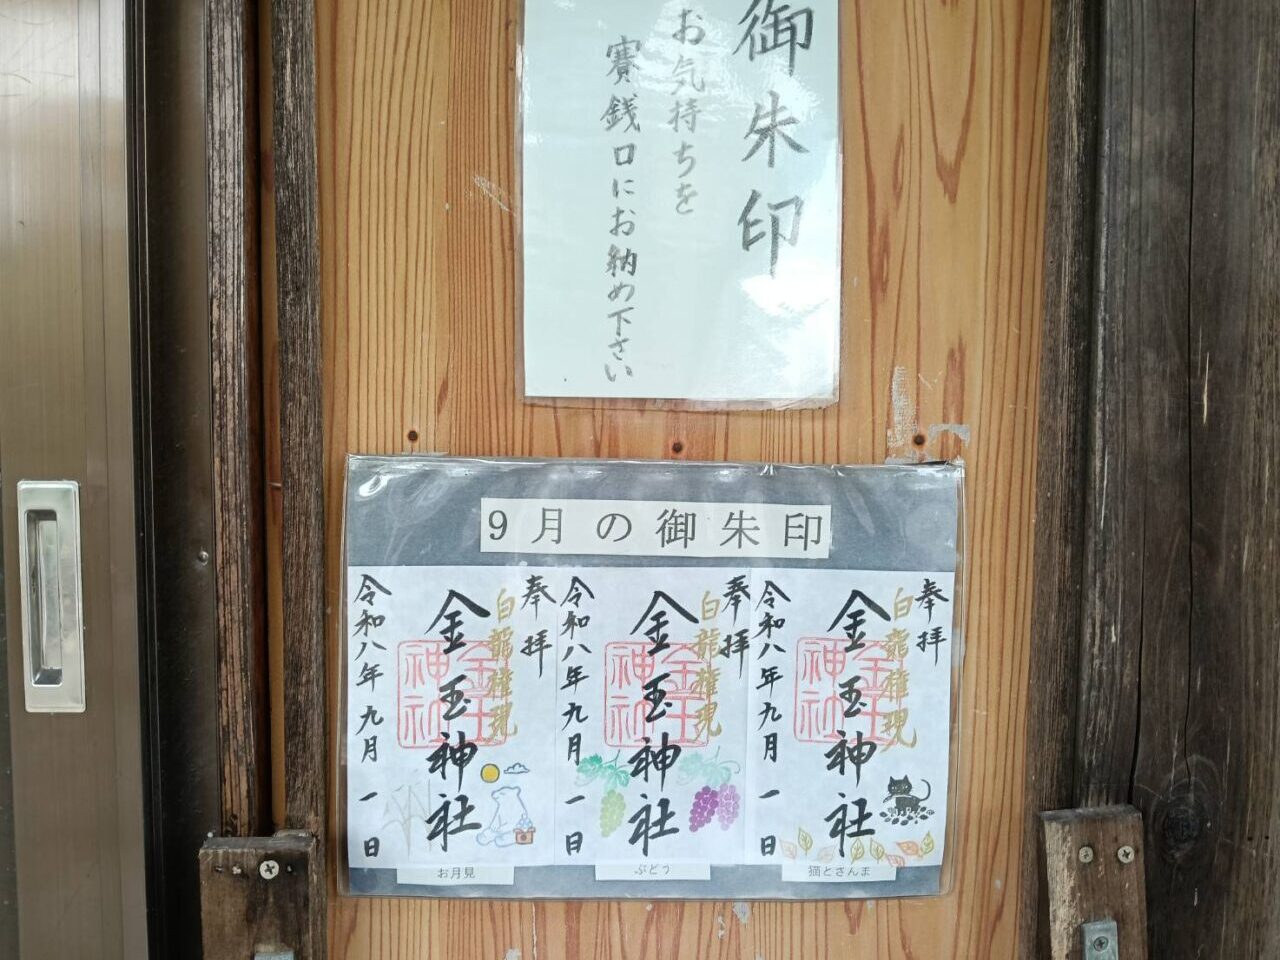 御朱印
お気持ちを
賽銭口にお納め下さい
9月の御朱印
奉拝
白龍権現
金玉神社
令和八年九月一日
お月見
奉拝
白龍権現
金玉神社
令和八年九月一日
ぶどう
奉拝
白龍権現
金玉神社
令和八年九月一日
猫とさんま